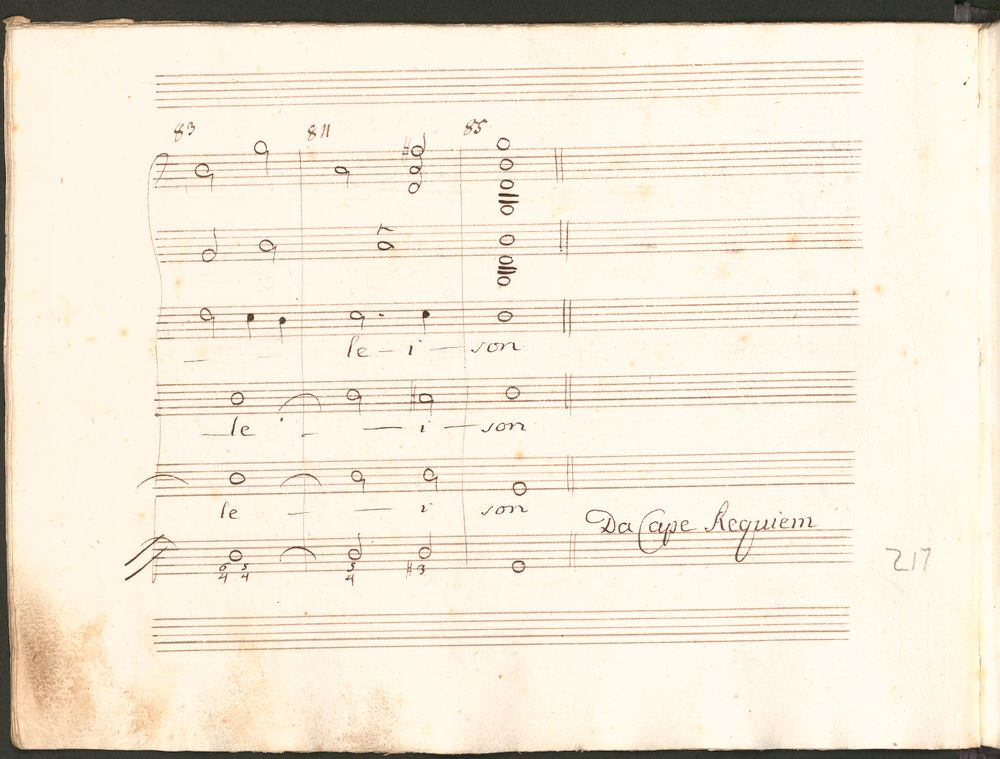 83 811 85
le - i - son
le - - i - son
le - - i son
Da Cape Requiem
6 5 5 # 3
4 4 4
217